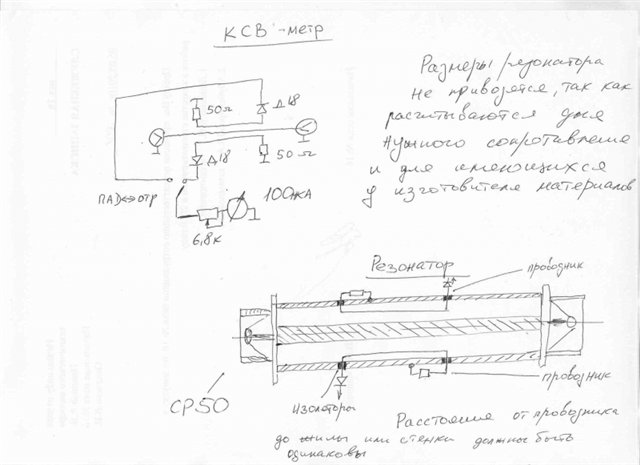 КСВ-метр
Размеры резонатора
не приводятся, так как
расчитываются для
нужного сопротивление
и для имеющихся
у изготовителя материалов
50Ω
Д18
Д18
50Ω
ПАД↔ОТР
100мкА
6,8к
Резонатор
проводник
СР50
изоляторы
проводник
Расстояние от проводника
до жилы или стенки должны быть
одинаковы